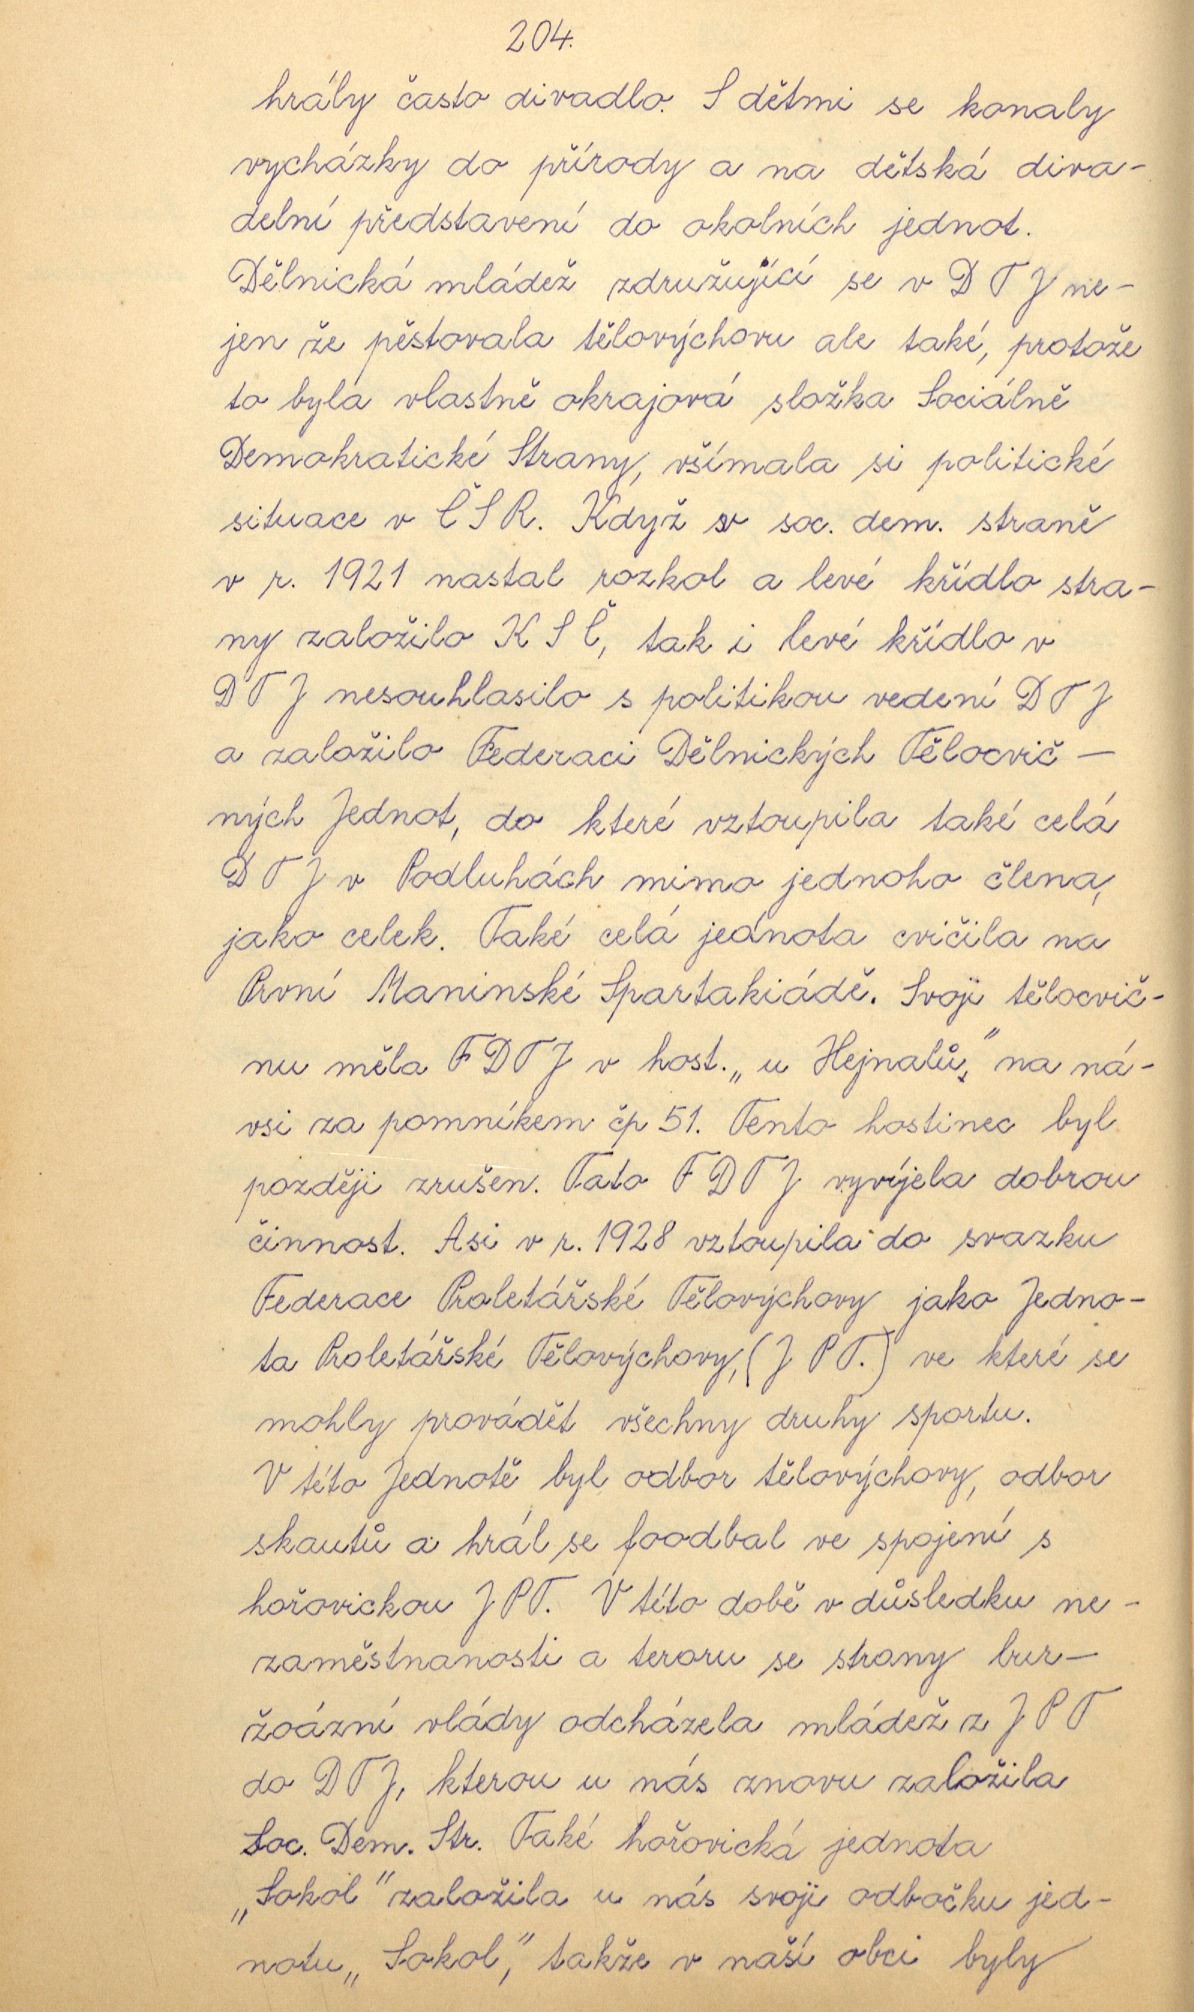 204.
hrály často divadlo. S dětmi se konaly
vycházky do přírody a na dětská diva-
delní představení do okolních jednot.
Dělnická mládež združující se v D T J ne-
jen že pěstovala tělovýchovu ale také, protože
to byla vlastně okrajová složka Sociálně
Demokratické Strany, všímala si politické
situace v Č S R. Když v soc. dem. straně
v r. 1921 nastal rozkol a levé křídlo stra-
ny založilo K S Č, tak i levé křídlo v
D T J nesouhlasilo s politikou vedení D T J
a založilo Federaci Dělnických Tělocvič-
ných Jednot, do které vztoupila také celá
D T J v Podluhách mimo jednoho člena,
jako celek. Také celá jednota cvičila na
První Maninské Spartakiádě. Svoji tělocvič-
nu měla F D T J v host. „u Hejnalů," na ná-
vsi za pomníkem čp 51. Tento hostinec byl
později zrušen. Tato F D T J vyvíjela dobrou
činnost. Asi v r. 1928 vztoupila do svazku
Federace Proletářské Tělovýchovy jako Jedno-
ta Proletářské Tělovýchovy, (J P T.) ve které se
mohly provádět všechny druhy sportu.
V této Jednotě byl odbor tělovýchovy, odbor
skautů a hrál se foodbal ve spojení s
hořovickou J P T. V této době v důsledku ne-
zaměstnanosti a teroru se strany bur-
žoázní vlády odcházela mládež z J P T
do D T J, kterou u nás znovu založila
Soc. Dem. Str. Také hořovická jednota
„Sokol" založila u nás svoji odbočku jed-
notu „Sokol," takže v naší obci byly